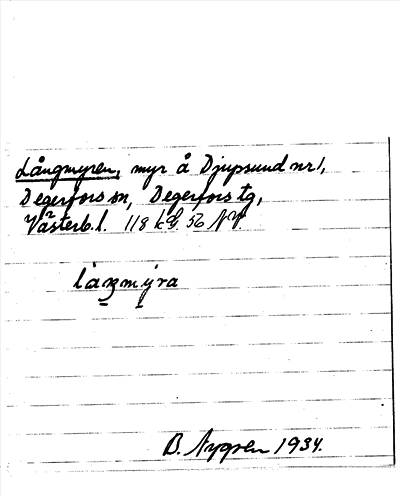 Långmyren, myr å Djupsund nr 1,
Degerfors sn, Degerfors tg,
Västerb. l. 118 kd. 56 NV.
làŋmýra
B. Nygren 1934.